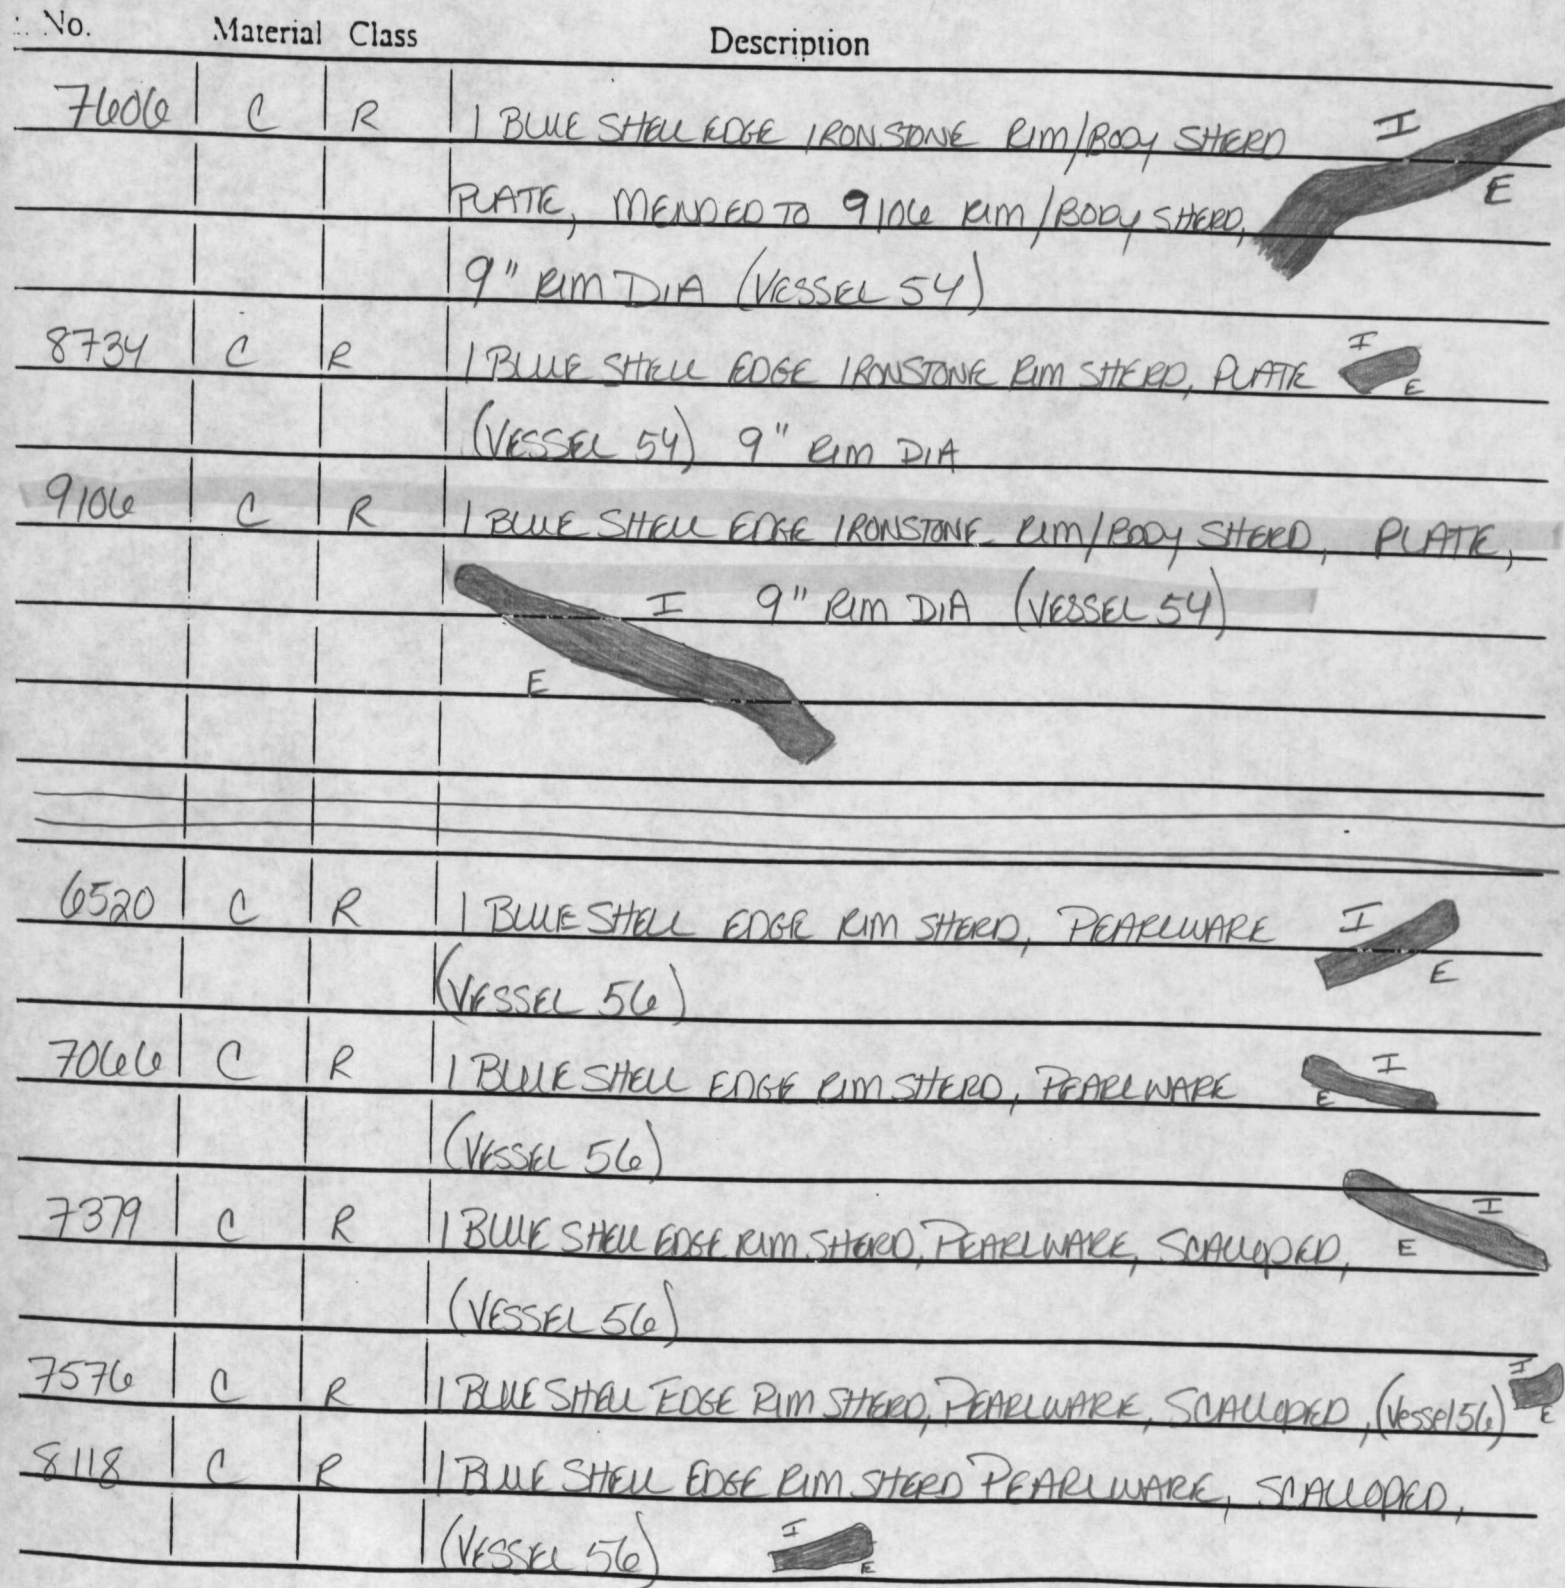 No. Material Class Description
7606 C R 1 BLUE SHELL EDGE IRONSTONE RIM/BODY SHERD I
PLATE, MENDED TO 9106 RIM/BODY SHERD, E
9" RIM DIA (VESSEL 54)
8734 C R 1 BLUE SHELL EDGE IRONSTONE RIM SHERD, PLATE I E
(VESSEL 54) 9" RIM DIA
9106 C R 1 BLUE SHELL EDGE IRONSTONE RIM/BODY SHERD, PLATE,
I 9" RIM DIA (VESSEL 54)
E
6520 C R 1 BLUE SHELL EDGE RIM SHERD, PEARLWARE I E
(VESSEL 56)
7066 C R 1 BLUE SHELL EDGE RIM SHERD, PEARLWARE E I
(VESSEL 56)
7379 C R 1 BLUE SHELL EDGE RIM SHERD, PEARLWARE, SCALLOPED, E I
(VESSEL 56)
7576 C R 1 BLUE SHELL EDGE RIM SHERD, PEARLWARE, SCALLOPED, (Vessel 56) I E
8118 C R 1 BLUE SHELL EDGE RIM SHERD PEARLWARE, SCALLOPED,
(VESSEL 56) I E